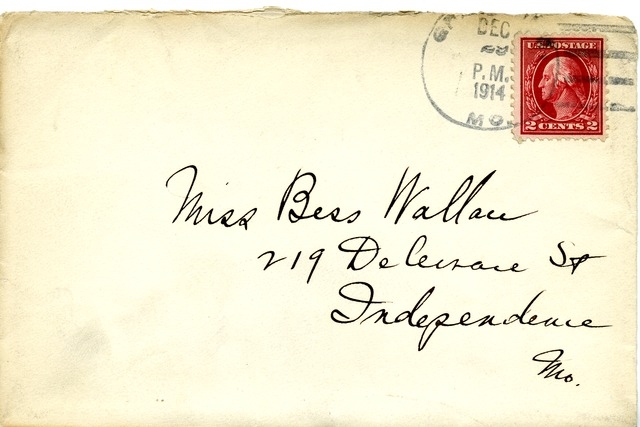 DEC
29
P.M.
1914
MO.
U.S. POSTAGE
2 CENTS 2
Miss Bess Wallace
219 Delaware St
Independence
Mo.